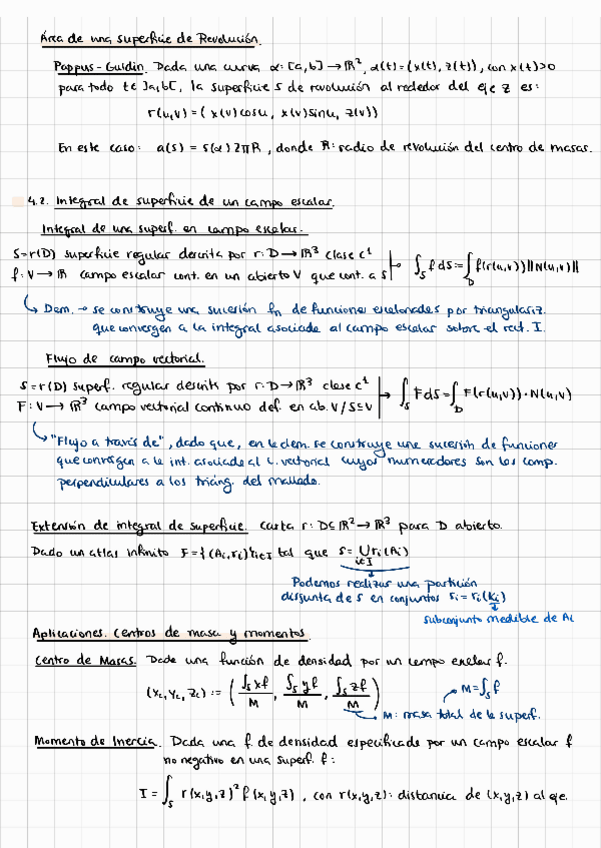 Área de una superficie de Revolución.
Pappus-Guldin. Dada una curva α: [a,b] → ℝ², α(t) = (x(t), z(t)), con x(t)>0
para todo t∈ ]a,b[, la superficie S de revolución al rededor del eje z es:
r(u,v) = ( x(v)cosu, x(v)sinu, z(v))
En este caso: a(S) = s(α) 2πR, donde R: radio de revolución del centro de masas.
4.2. Integral de superficie de un campo escalar.
Integral de una superf. en campo escalar.
S=r(D) superficie regular descrita por r: D → ℝ³ clase C¹
f: V → ℝ campo escalar cont. en un abierto V que cont. a S ⊢ ∫_S f dS = ∫_D f(r(u,v)) ||N(u,v)||
↳ Dem. → se construye una sucesión fn de funciones escalonadas por triangulariz.
que convergen a la integral asociada al campo escalar sobre el rect. I.
Flujo de campo vectorial.
S=r(D) superf. regular descrita por r: D → ℝ³ clase C¹
F: V → ℝ³ campo vectorial continuo def. en ab. V / S⊆V → ∫_S F dS = ∫_D F(r(u,v)) · N(u,v)
↳ "Flujo a través de", dado que, en la dem. se construye una sucesión de funciones
que convergen a la int. asociada al c. vectorial cuyos numeradores son las comp.
perpendiculares a los triáng. del mallado.
Extensión de integral de superficie. Carta r: D⊆ℝ² → ℝ³ para D abierto.
Dado un atlas infinito F = {(Ai, ri)}i∈I tal que S = ∪ ri(Ai)
i∈I
Podemos realizar una partición
disjunta de S en conjuntos Si = ri(Ki)
subconjunto medible de Ai
Aplicaciones. Centros de masa y momentos.
Centro de Masas. Dada una función de densidad por un campo escalar f.
(xc, yc, zc) := ( ∫_S xf / M , ∫_S yf / M , ∫_S zf / M ) → M = ∫_S f
→ M: masa total de la superf.
Momento de Inercia. Dada una f. de densidad especificada por un campo escalar f
no negativo en una superf. f:
I = ∫_S r(x,y,z)² f(x,y,z) , con r(x,y,z): distancia de (x,y,z) al eje.